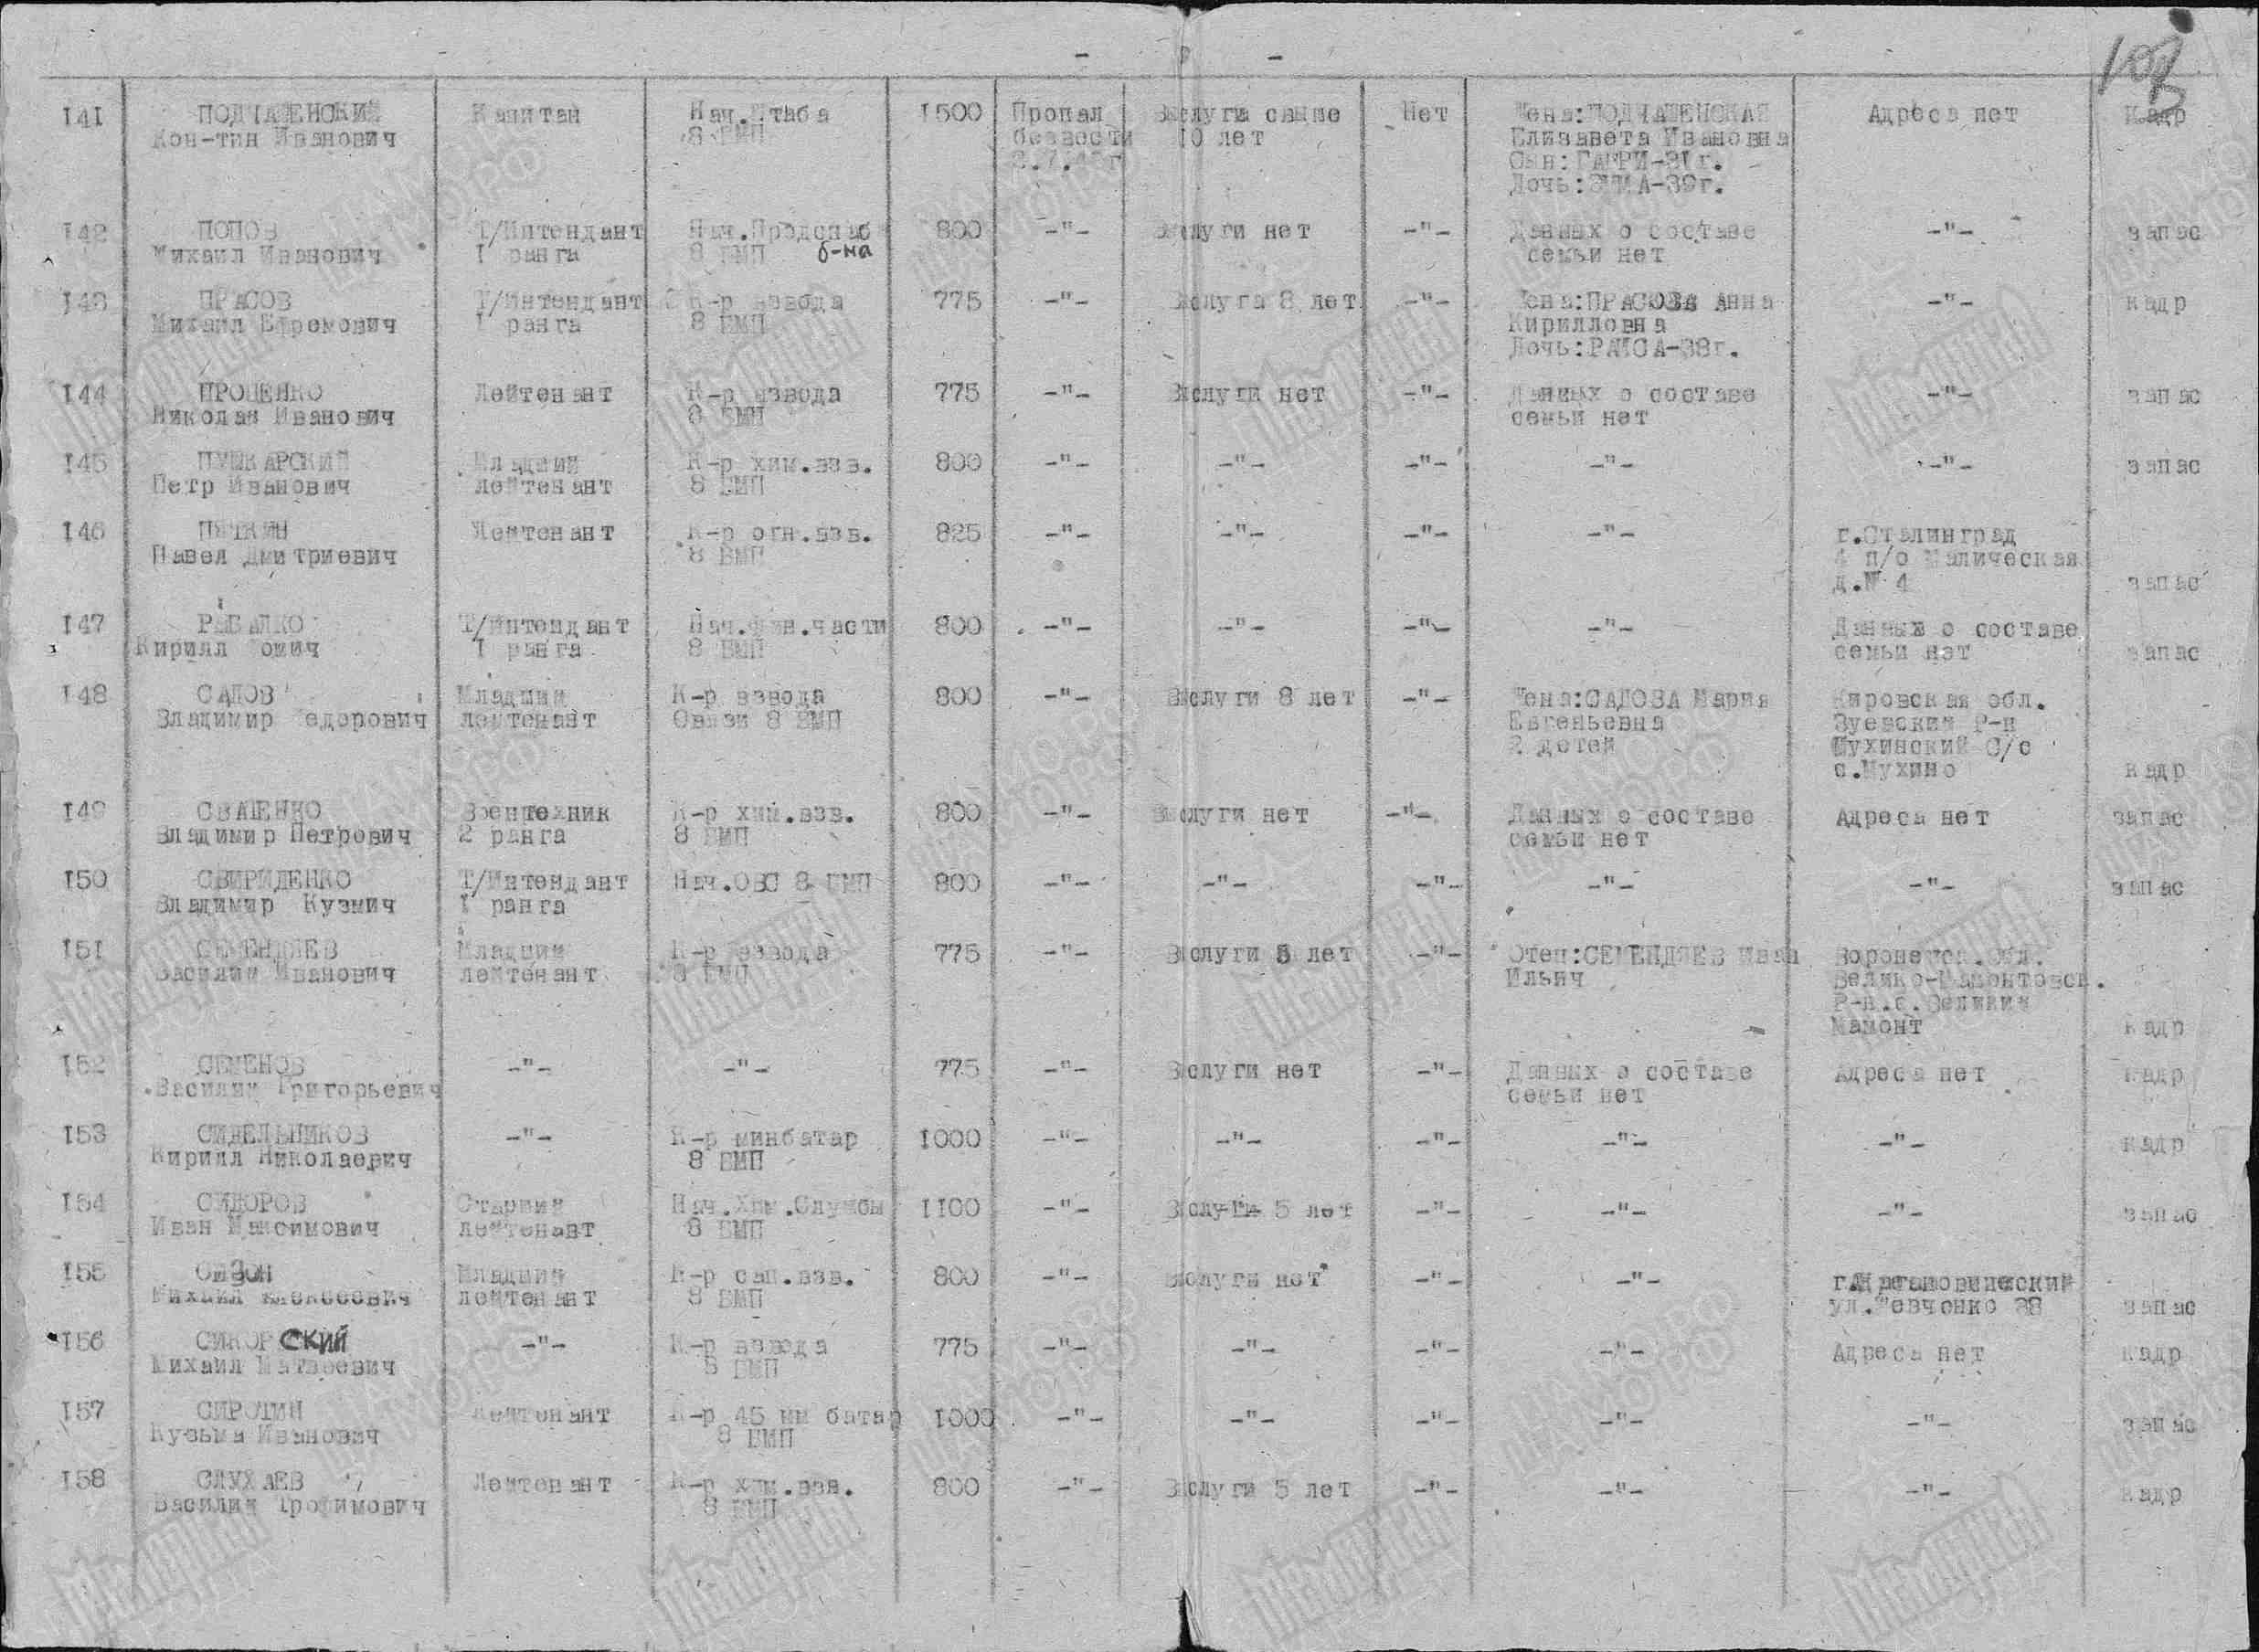 141 ПОДЧАШЕНСКИЙ Капитан Нач.Штаба 1500 Пропал Выслуги свыше Нет Жена:ПОДЧАШЕНСКАЯ Адреса нет Кадр
Кон-тин Иванович 8 БМП безвести 10 лет Елизавета Ивановна
Сын: ГАРРИ-31г.
Дочь: -39г.
142 ПОПОВ Т/Интендант Нач.Продснаб 800 -"- Выслуги нет -"- Данных о составе -"- запас
Михаил Иванович 1 ранга 8 БМП б-на семьи нет
143 ПРАСОВ Т/Интендант К-р взвода 775 -"- Выслуга 8 лет -"- Жена:ПРАСОВА Анна -"- кадр
Михаил Ефремович 1 ранга 8 БМП Кирилловна
Дочь:РАИСА-38г.
144 ПРОЦЕНКО Лейтенант К-р взвода 775 -"- Выслуги нет -"- Данных о составе -"- запас
Николай Иванович 8 БМП семьи нет
145 ПУШКАРСКИЙ Младший К-р хим.взв. 800 -"- -"- -"- -"- -"- запас
Петр Иванович лейтенант 8 БМП
146 Лейтенант К-р огн.взв. 825 -"- -"- -"- -"- г.Сталинград
Павел Дмитриевич 8 БМП 4 п/о
д.№ 4 запас
147 РЫБАЛКО Т/Интендант Нач.Фин.части 800 -"- -"- -"- -"- Данных о составе
Кирилл 1 ранга 8 БМП семьи нет запас
148 САДОВ Младший К-р взвода 800 -"- Выслуги 8 лет -"- Жена:САДОВА Мария Кировская обл.
Владимир Федорович лейтенант Связи 8 БМП Евгеньевна Зуевский Р-н
2 детей Мухинский С/с
с.Мухино кадр
149 СВАШЕНКО Воентехник К-р хим.взв. 800 -"- Выслуги нет -"- Данных о составе Адреса нет запас
Владимир Петрович 2 ранга 8 БМП семьи нет
150 СВИРИДЕНКО Т/Интендант Нач.ОВС 8 БМП 800 -"- -"- -"- -"- -"- запас
Владимир Кузмич 1 ранга
151 СЕМЕНДЯЕВ Младший К-р взвода 775 -"- Выслуги 5 лет -"- Отец:СЕМЕНДЯЕВ Иван Воронежск.обл.
Василий Иванович лейтенант 8 БМП Ильич Велико-Мамонтовск.
Р-н.с.Великий
Мамонт кадр
152 СЕМЕНОВ -"- -"- 775 -"- Выслуги нет -"- Данных о составе Адреса нет кадр
Василий Григорьевич семьи нет
153 СИДЕЛЬНИКОВ -"- К-р минбатар 1000 -"- -"- -"- -"- -"- кадр
Кирилл Николаевич 8 БМП
154 СИДОРОВ Старший Нач.Хим.Службы 1100 -"- Выслуги 5 лет -"- -"- -"- запас
Иван Максимович лейтенант 8 БМП
155 СИЗОН Младший К-р сап.взв. 800 -"- Выслуги нет -"- -"-
Михаил Алексеевич лейтенант 8 БМП ул.Шевченко 38 запас
156 СИКОРСКИЙ -"- К-р взвода 775 -"- -"- -"- -"- Адреса нет кадр
Михаил Матвеевич 8 БМП
157 СИРОТИН Лейтенант К-р 45 мм батар 1000 -"- -"- -"- -"- -"- запас
Кузьма Иванович 8 БМП
158 СЛУХАЕВ Лейтенант К-р хим.взв. 800 -"- Выслуги 5 лет -"- -"- -"- кадр
Василий Трофимович 8 БМП